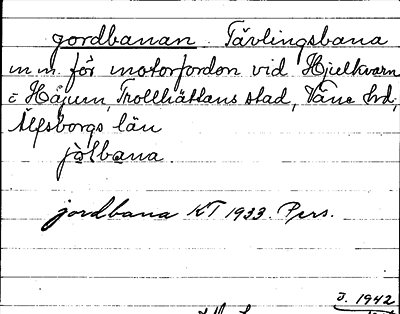 Jordbanan Tävlingsbana
m.m. för motorfordon vid Hjulkvarn
i Håjum, Trollhättans stad, Väne hd,
Älfsborgs län
jo̱lba̱na.
jordbana KT 1933. Pers.
J. 1942